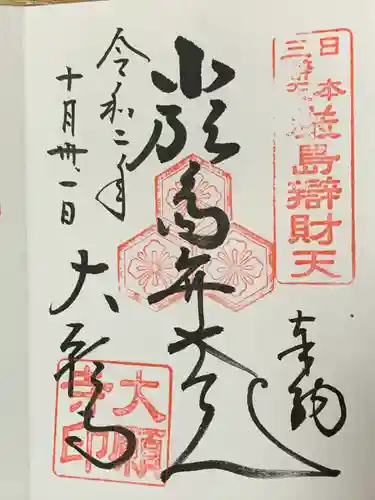 奉納
日本
三
厳島辯財天
厳島弁才天
令和二年
十月卅一日
大願寺
大願
寺印